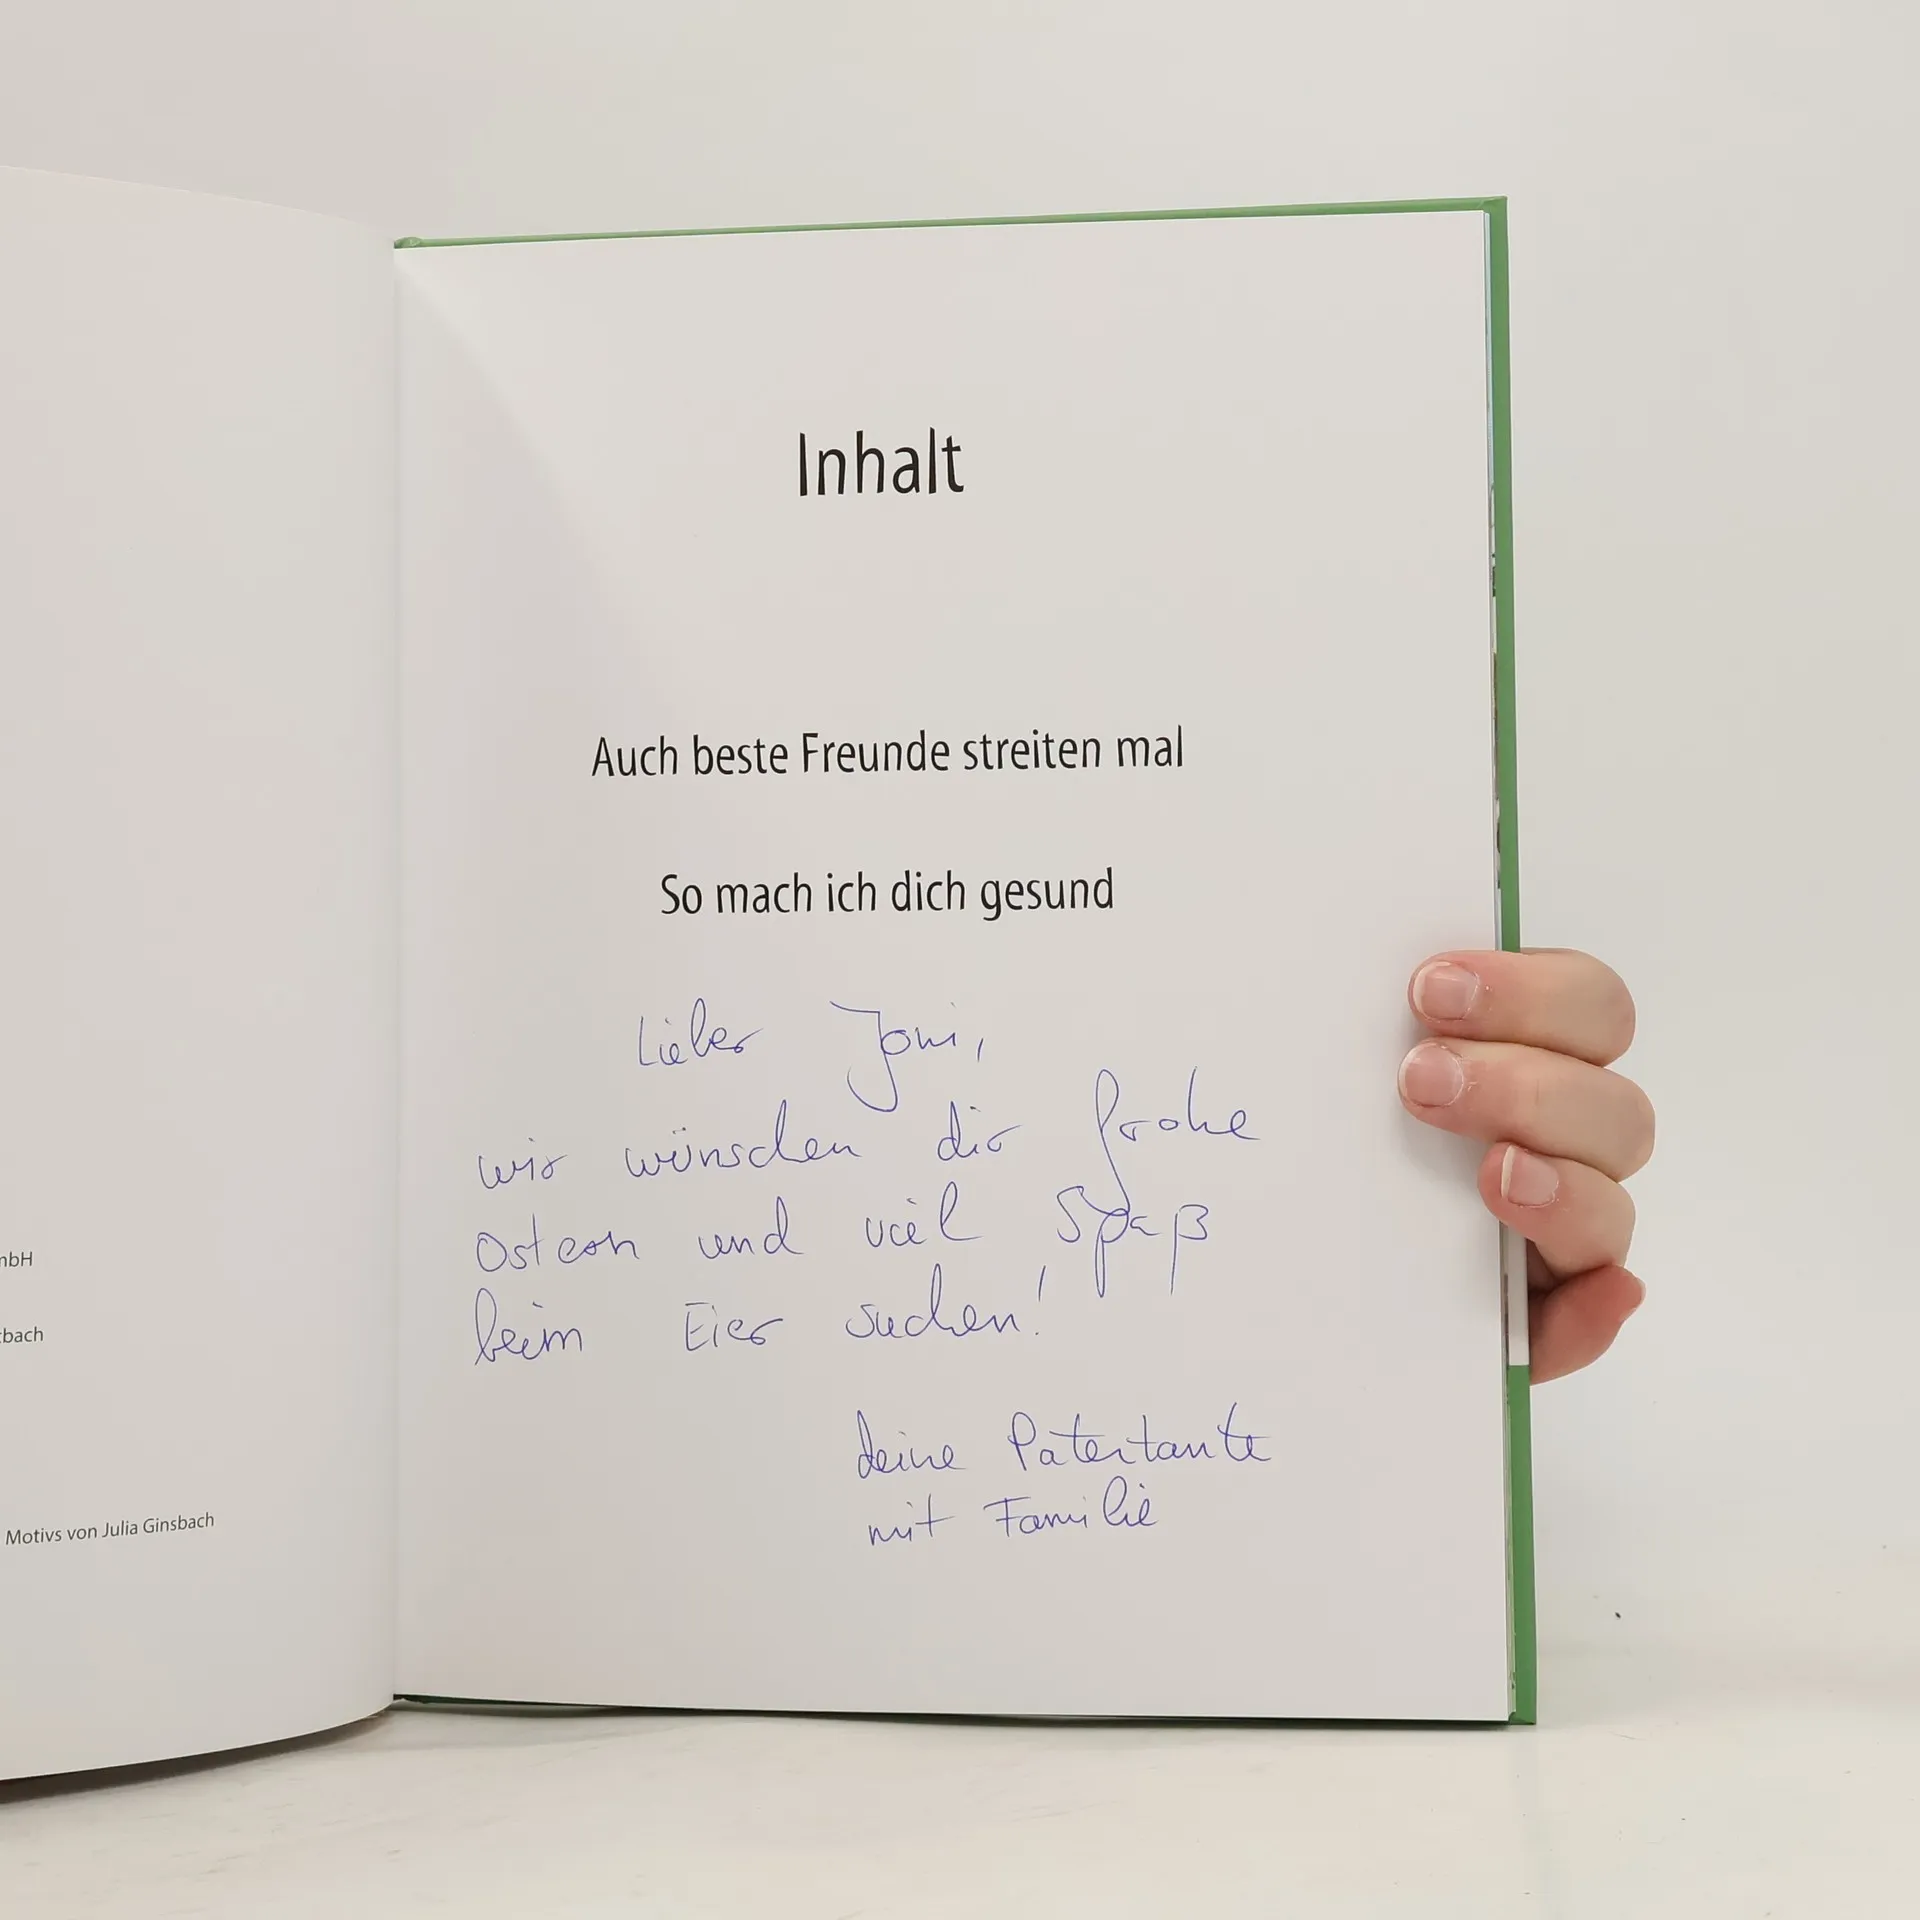 nbH
tbach
Motivs von Julia Ginsbach
Inhalt
Auch beste Freunde streiten mal
So mach ich dich gesund
Lieber Joni,
wir wünschen dir frohe
Ostern und viel Spaß
beim Eier suchen!
deine Patentante
mit Familie